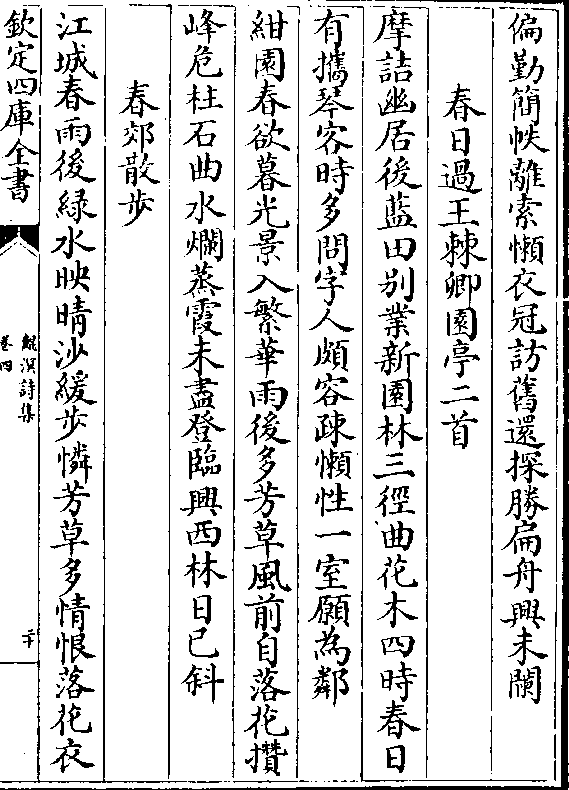 偏勤簡帙離索懶衣冠訪舊還探勝扁舟興未闌
春日過王棘卿園亭二首
摩詰幽居後藍田别業新園林三徑曲花木四時春日
有攜琴客時多問字人頗容疎懶性一室願為鄰
紺園春欲暮光景入繁華雨後多芳草風前自落花攢
峰危柱石曲水爛蒸霞未盡登臨興西林日已斜
春郊散步
江城春雨後緑水映晴沙緩步憐芳草多情恨落花衣
欽定四庫全書
鯤溟詩集
卷四
二十